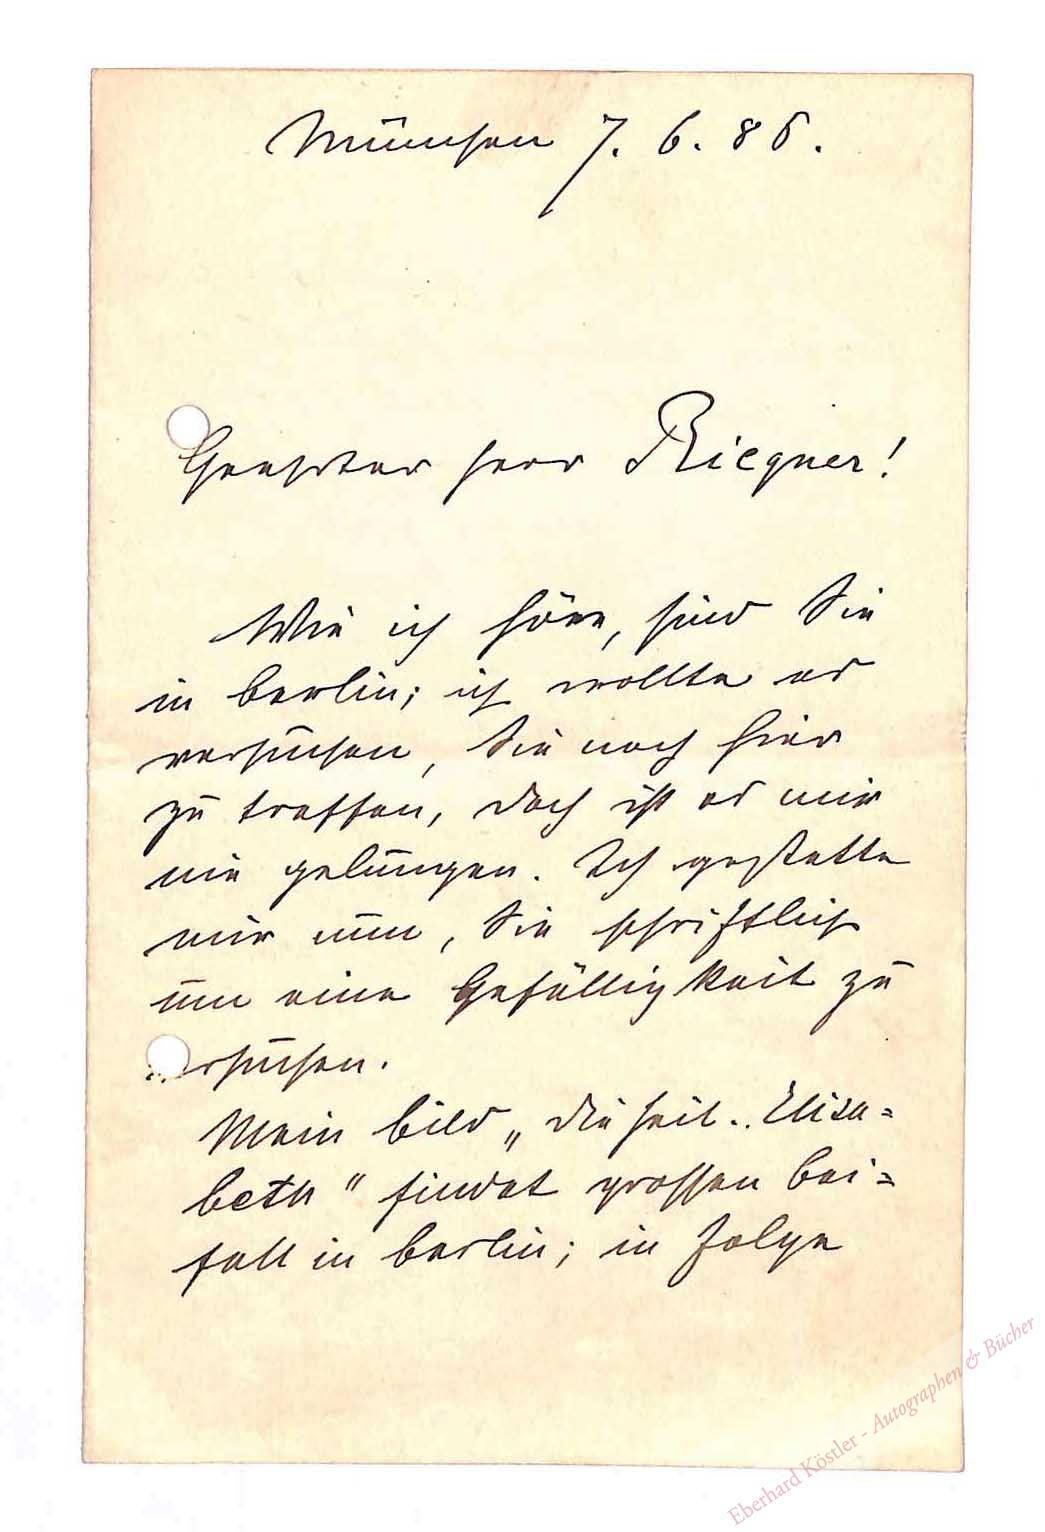 München 7. 6. 86.
Geehrter Herr Riegner!
Wie ich höre, sind Sie
in Berlin; ich wollte es
versuchen, Sie noch hier
zu treffen, doch ist es mir
nie gelungen. Ich gestatte
mir nun, Sie schriftlich
um eine Gefälligkeit zu
ersuchen.
Mein Bild „die heil. Elisa=
beth" findet grossen Bei=
fall in Berlin; in Folge
Eberhard Köstler - Autographen & Bücher